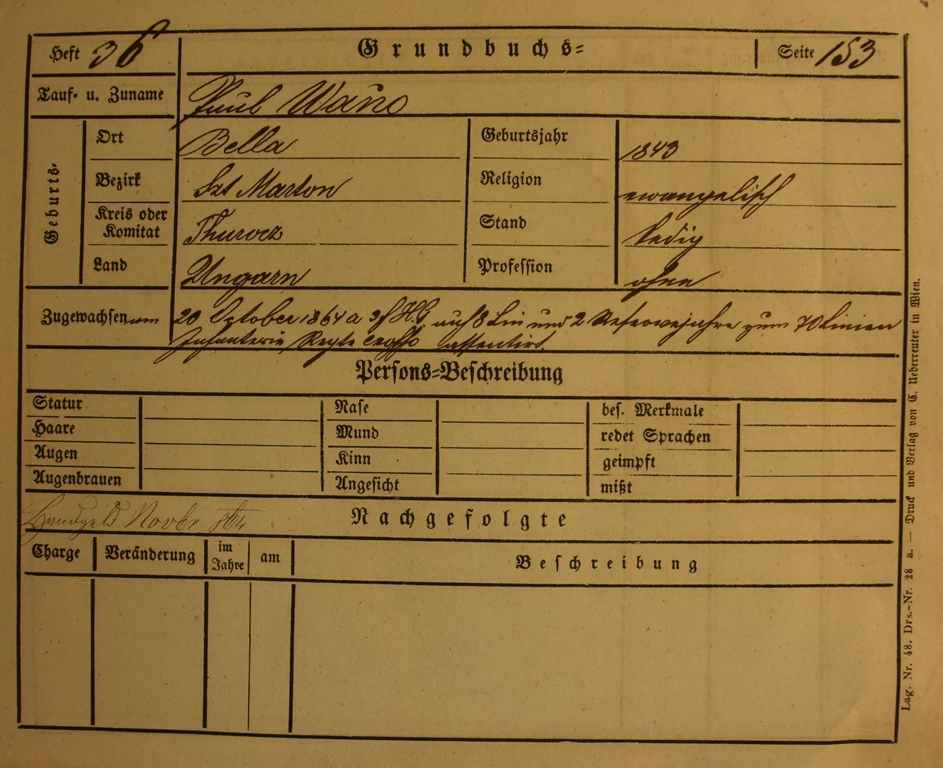 Heft 36 Grundbuchs= Seite 153
Tauf- u. Zuname Paul Wano
Geburts-
Ort Bella Geburtsjahr 1843
Bezirk Szt Marton Religion evangelisch
Kreis oder Komitat Thurocz Stand ledig
Land Ungarn Profession ohne
Zugewachsen am 20 October 1864 a auf 8 Lin und 2 Reservejahre zum 70 Linien
Infanterie Regte assentirt.
Persons=Beschreibung
Statur Nase bes. Merkmale
Haare Mund redet Sprachen
Augen Kinn geimpft
Augenbrauen Angesicht mißt
Handgeld Novbr 864 Nachgefolgte
Charge Veränderung im Jahre am Beschreibung
Lag. Nr. 48. Drs.-Nr. 28 a. — Druck und Verlag von C. Ueberreuter in Wien.